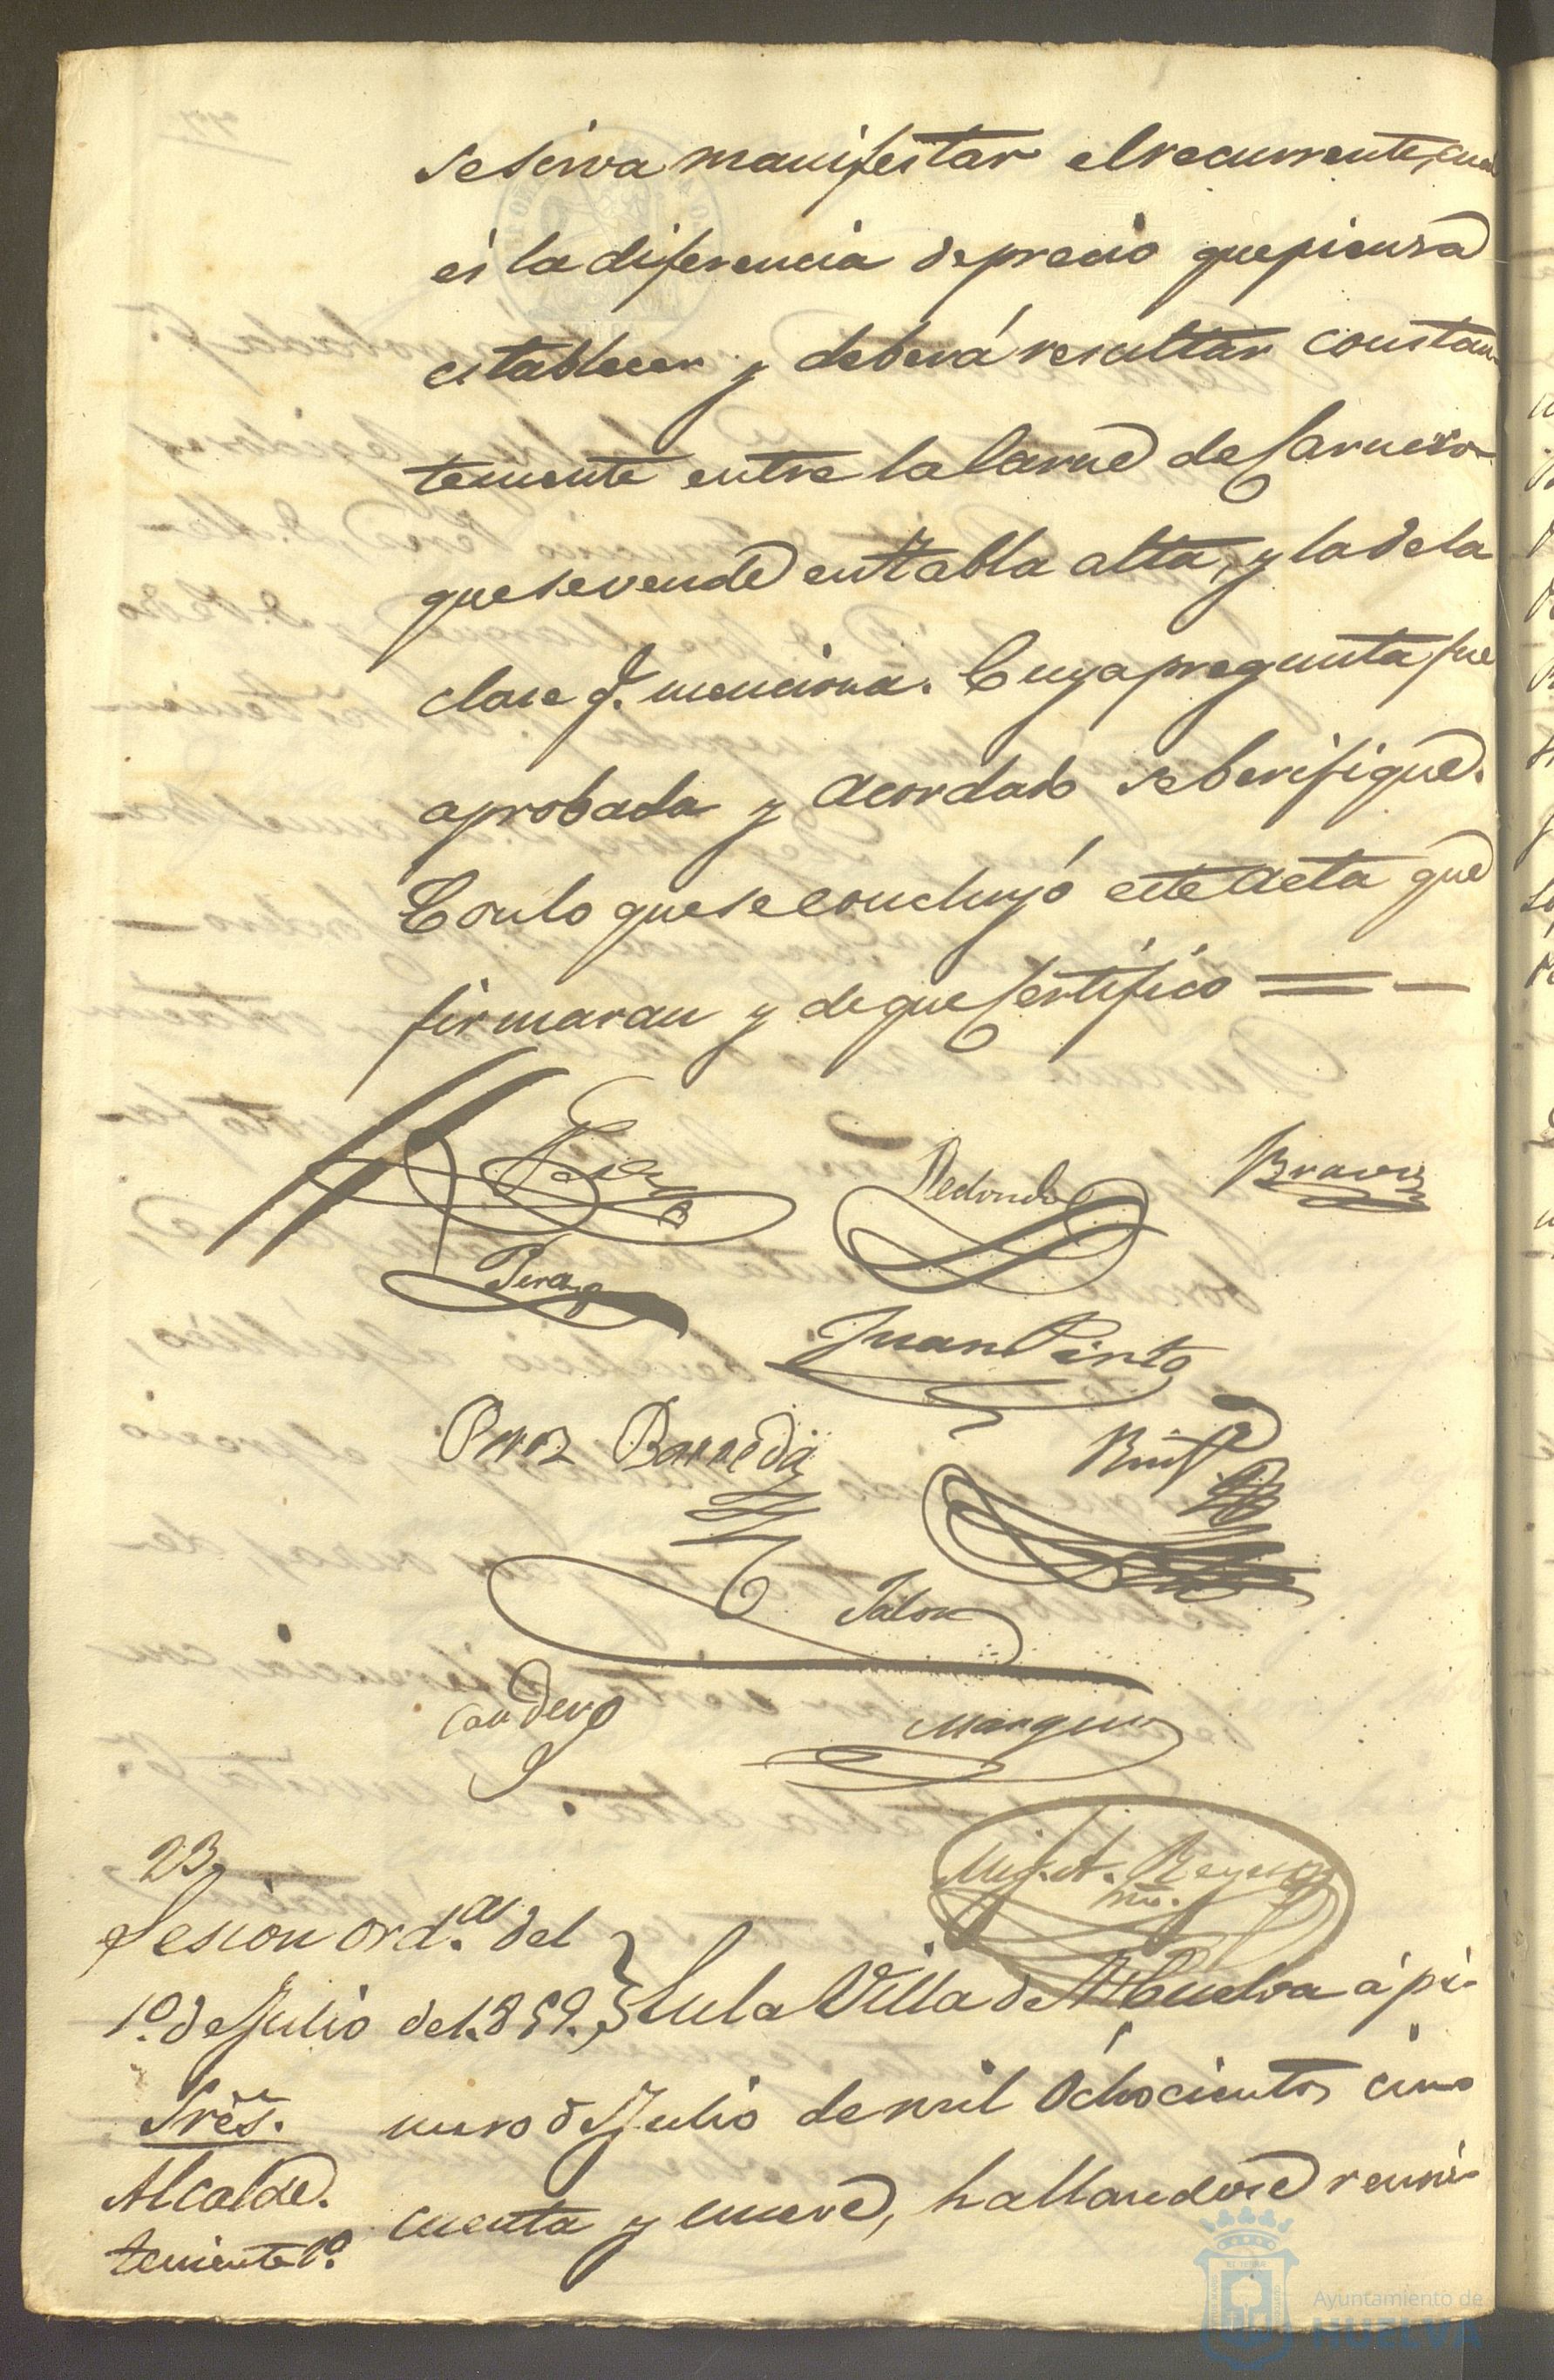 se sirva manifestar el recurrente, cual
és la diferencia de precio que piensa
establecer y deberá resultar constan-
temente entre la Carne de Carnero
que se vende en tabla alta, y la de la
clase q.e menciona. Cuya pregunta fue
aprobada y acordado se berifique.
Con lo que se concluyó este acta que
firmaran y de que Certifico
Redondo
Bravo
Peraza
Juan Pinto
Perez Barreda
Ruiz
Jalon
Candero
Marquez
23
Sesion ord.a del
1.º de Julio de 1.859.
Mig. A. Reyes
En la Villa de Huelva á pri-
Sres.
mero de Julio de mil Ochocientos cin-
Alcalde.
cuenta y nueve, hallandose reuni-
teniente 1.º
Ayuntamiento de
HUELVA